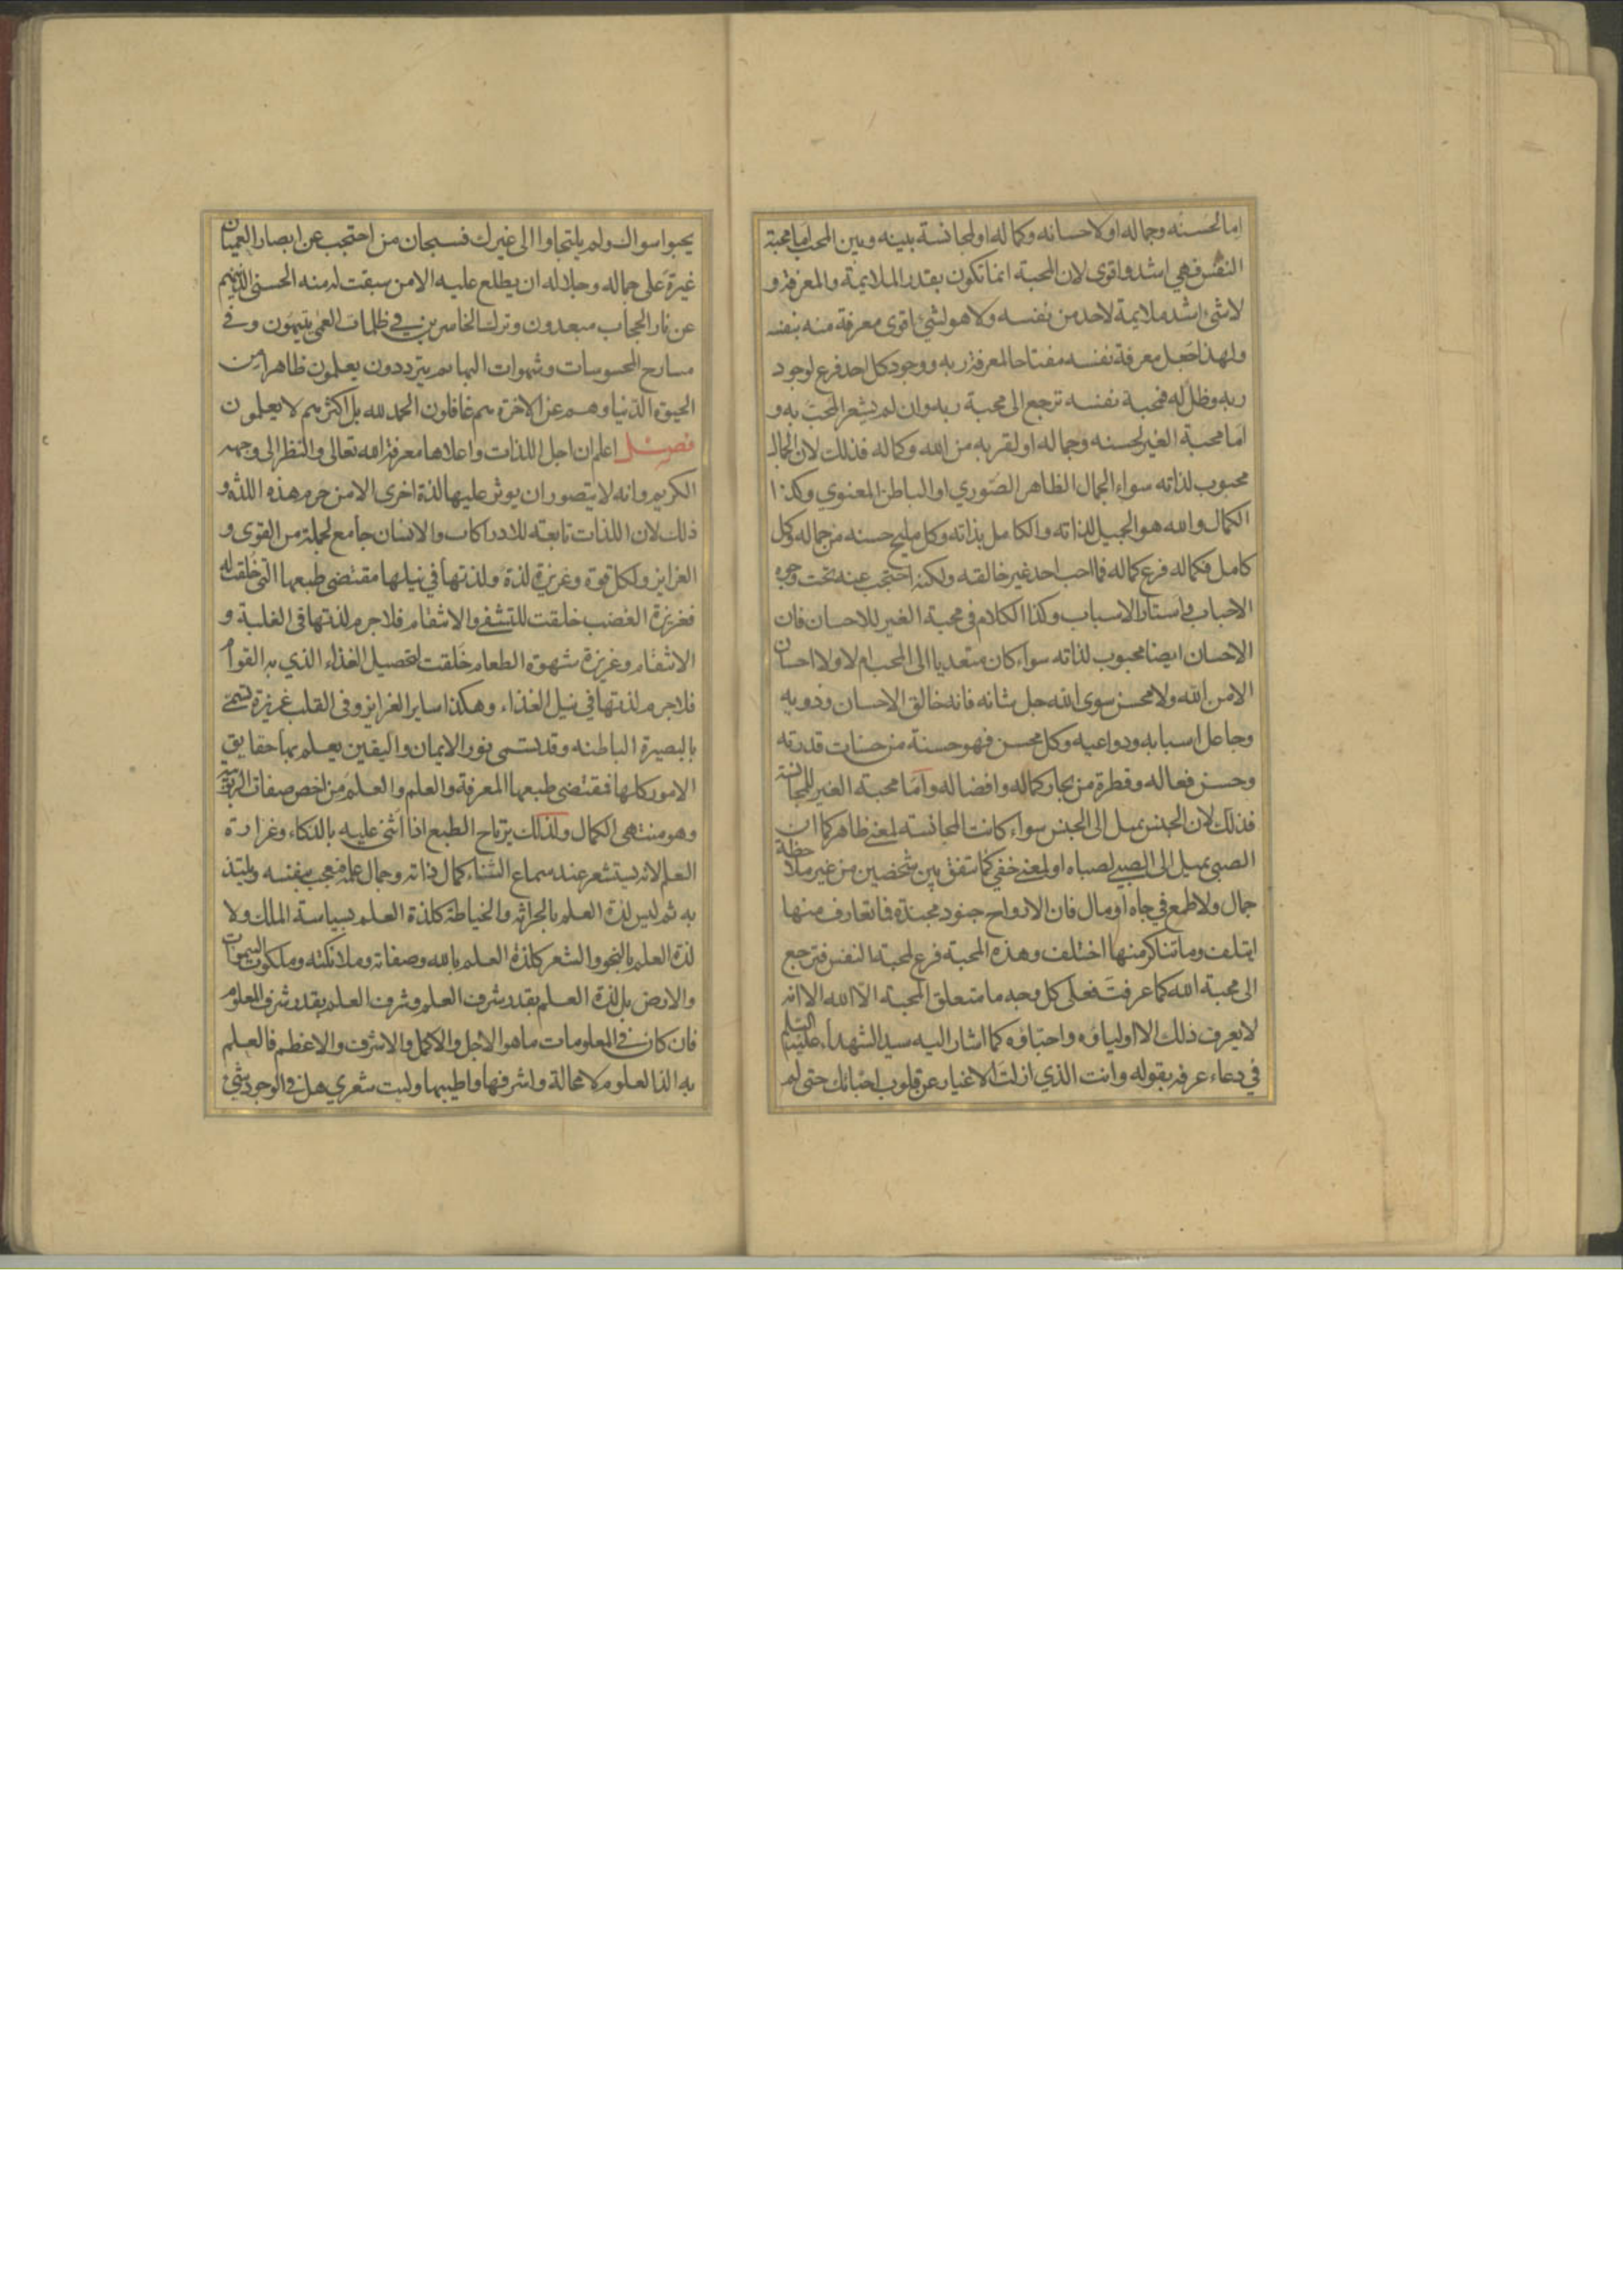 اما لحسنه وجماله او لاحسانه وكماله او لمجانسة بينه وبين المحب اما محبة
النفس فهي اشد واقوى لان المحبة انما تكون بقدر الملايمة والمعرفة و
لا شئ اشد ملايمة لاحد من نفسه ولا هو لشئ اقوى معرفة منه بنفسه
ولهذا جعل معرفة نفسه مفتاحا لمعرفة ربه ووجود كل احد فرع لوجود
ربه وظل له فمحبة نفسه ترجع الى محبة ربه وان لم يشعر المحب به و
اما محبة الغير لحسنه وجماله او لقربه من الله وكماله فذلك لان الجمال
محبوب لذاته سواء الجمال الظاهر الصوري او الباطن المعنوي وكذا
الكمال والله هو الجميل لذاته والكامل بذاته وكل مليح حسنه من جماله وكل
كامل فكماله فرع كماله فما احب احد غير خالقه ولكنه احتجب عنه تحت وجوه
الاحباب في استار الاسباب وكذا الكلام في محبة الغير للاحسان فان
الاحسان ايضا محبوب لذاته سواء كان متعديا الى المحب ام لا ولا احسان
الا من الله ولا محسن سوى الله جل شانه فانه خالق الاحسان وذويه
وجاعل اسبابه ودواعيه وكل محسن فهو حسنة من حسنات قدرته
وحسن فعاله وقطرة من بحار كماله وافضاله واما محبة الغير للمجانسة
فذلك لان الجنس يميل الى الجنس سواء كانت المجانسة لمعنى ظاهر كما ان
الصبي يميل الى الصبي لصباه او لمعنى خفي كما تتفق بين شخصين من غير ملاحظة
جمال ولا طمع في جاه او مال فان الارواح جنود مجندة فما تعارف منها
ايتلف وما تناكر منها اختلف وهذه المحبة فرع لمحبة النفس فترجع
الى محبة الله كما عرفت فعلى كل وجه ما متعلق المحبة الا الله الا انه
لا يعرف ذلك الا اولياؤه واحباؤه كما اشار اليه سيد الشهداء عليه السلم
في دعاء عرفه بقوله وانت الذي ازلت الاغيار عن قلوب احبائك حتى لم
يحبوا سواك ولم يلتجاوا الى غيرك فسبحان من احتجب عن ابصار العميان
غيرة على جماله وجلاله ان يطلع عليه الا من سبقت له منه الحسنى الذين هم
عن نار الحجاب مبعدون وترك الخاسرين في ظلمات العمى يتيهون وفي
مسارح المحسوسات وشهوات البهائم يترددون يعلمون ظاهرا من
الحيوة الدنيا وهم عن الاخرة هم غافلون الحمد لله بل اكثرهم لا يعلمون
فصل اعلم ان اجل اللذات واعلاها معرفة الله تعالى والنظر الى وجهه
الكريم وانه لا يتصور ان يوثر عليها لذة اخرى الا من حرم هذه اللذة و
ذلك لان اللذات تابعة للادراكات والانسان جامع لجملة من القوى و
الغرايز ولكل قوة وغريزة لذة ولذتها في نيلها مقتضى طبعها التي خلقت له
فغريزة الغضب خلقت للتشفي والانتقام فلاجرم لذتها في الغلبة و
الانتقام وغريزة شهوة الطعام خلقت لتحصيل الغذاء الذي به القوام
فلاجرم لذتها في نيل الغذاء وهكذا ساير الغرايز وفى القلب غريزة تسمى
بالبصيرة الباطنه وقد تسمى نور الايمان واليقين يعلم بها حقايق
الامور كلها فمقتضى طبعها المعرفة والعلم والعلم من اخص صفات الربوبية
وهو منتهى الكمال ولذلك يرتاح الطبع اذا اثنى عليه بالذكاء وغزارة
العلم لانه يستشعر عند سماع الثناء كمال ذاته وجمال علمه فيعجب بنفسه ويلتذ
به ثم ليس لذة العلم بالحراثه والخياطة كلذة العلم بسياسة الملك ولا
لذة العلم بالنحو والشعر كلذة العلم بالله وصفاته وملائكته وملكوت السموات
والارض بل لذة العلم بقدر شرف العلم وشرف العلم بقدر شرف المعلوم
فان كان في المعلومات ما هو الاجل والاكمل والاشرف والاعظم فالعلم
به الذ العلوم لا محالة واشرفها واطيبها وليت شعري هل في الوجود شئ